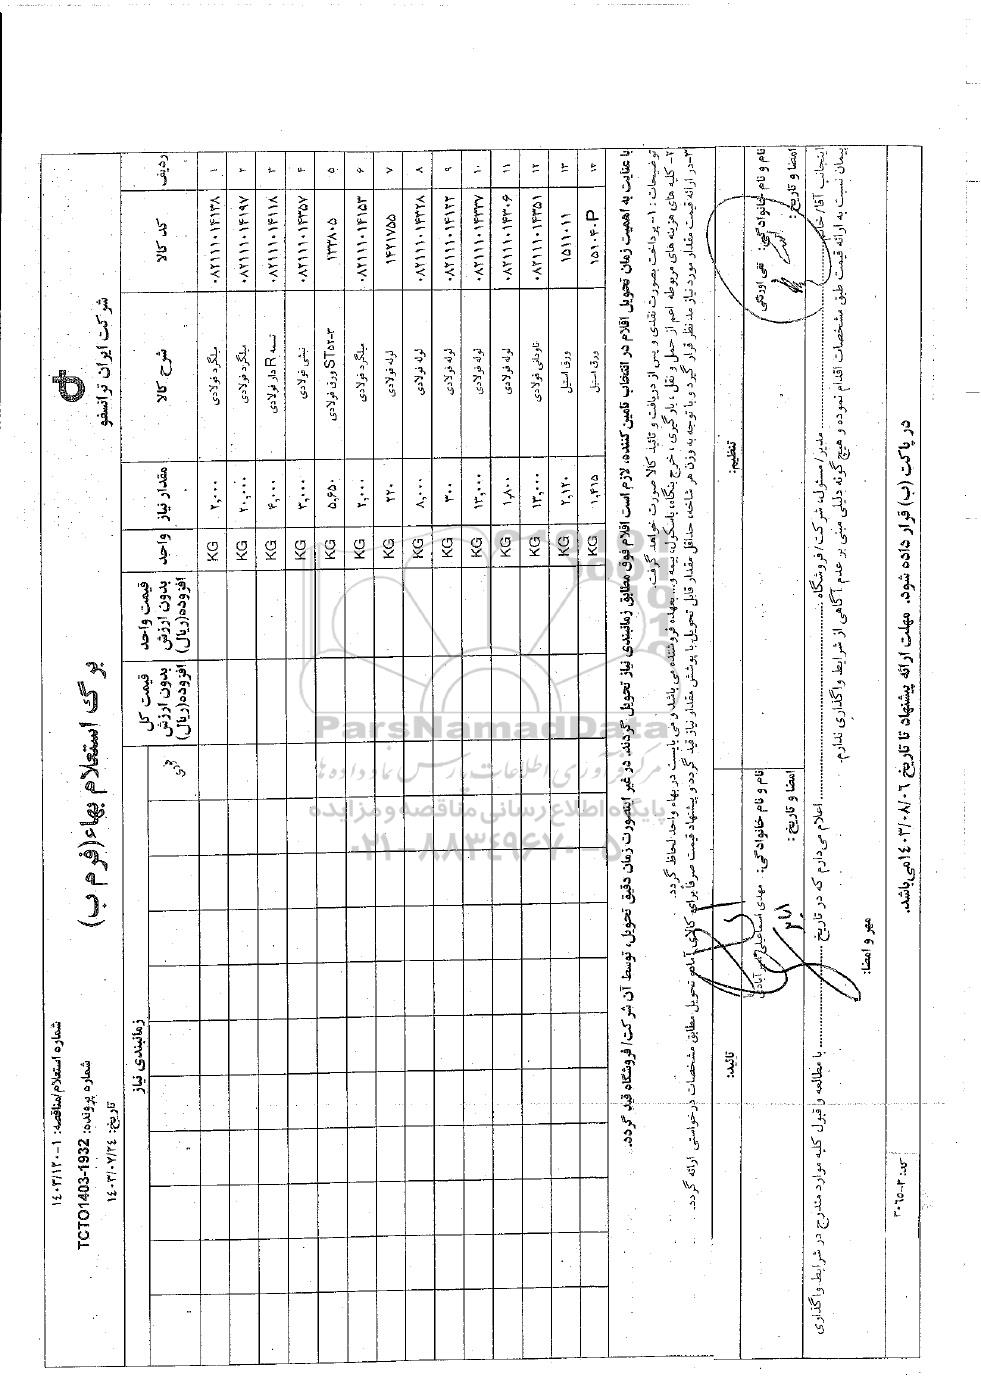 شرکت ایران ترانسفو
برگ استعلام بهاء (فرم ب)
شماره استعلام/مناقصه: ۱۴۰۳/۱۲۰-۱
شماره پرونده: TCTO1403-1932
تاریخ: ۱۴۰۳/۰۷/۲۴
ردیف کد کالا شرح کالا مقدار نیاز واحد قیمت واحد بدون ارزش افزوده(ریال) قیمت کل بدون ارزش افزوده(ریال) زمانبندی نیاز
۱ ۰۸۲۱۱۱۰۱۴۱۳۸ میلگرد فولادی ۲,۰۰۰ KG
۲ ۰۸۲۱۱۱۰۱۴۱۹۷ میلگرد فولادی ۲۰,۰۰۰ KG
۳ ۰۸۲۱۱۱۰۱۴۱۱۸ تسمه R دار فولادی ۴,۰۰۰ KG
۴ ۰۸۲۱۱۱۰۱۴۳۵۷ نبشی فولادی ۳,۰۰۰ KG
۵ ۱۳۳۸۰۵ ورق فولادی ST۵۲-۳ ۵,۶۵۰ KG
۶ ۰۸۲۱۱۱۰۱۴۱۵۳ میلگرد فولادی ۲,۰۰۰ KG
۷ ۱۴۲۱۷۵۵ لوله فولادی ۲۲۰ KG
۸ ۰۸۲۱۱۱۰۱۴۳۲۸ لوله فولادی ۸,۰۰۰ KG
۹ ۰۸۲۱۱۱۰۱۴۱۲۲ لوله فولادی ۳۰۰ KG
۱۰ ۰۸۲۱۱۱۰۱۴۳۳۷ لوله فولادی ۱۳,۰۰۰ KG
۱۱ ۰۸۲۱۱۱۰۱۴۳۰۶ لوله فولادی ۱,۸۰۰ KG
۱۲ ۰۸۲۱۱۱۰۱۴۳۵۱ ناودانی فولادی ۱۳,۰۰۰ KG
۱۳ ۱۵۱۱۰۱۱ ورق استیل ۲,۱۲۰ KG
۱۴ ۱۵۱۰۴۰P ورق استیل ۱,۴۱۵ KG
با عنایت به اهمیت زمان تحویل اقلام در انتخاب تامین کننده، لازم است اقلام فوق مطابق زمانبندی نیاز تحویل گردند. در غیر اینصورت زمان دقیق تحویل، توسط آن شرکت/فروشگاه قید گردد.
توضیحات: ۱-پرداخت بصورت نقدی و پس از دریافت و تائید کالا صورت خواهد گرفت.
۲-کلیه های هزینه های مربوطه اعم از حمل و نقل، بارگیری، خرج بنگاه، باسکول، بیمه و... بعهده فروشنده می باشد و می بایست در بهاء واحد لحاظ گردد.
۳-در ارائه قیمت مقدار مورد نیاز مد نظر قرار گیرد و با توجه به وزن هر شاخه، حداقل مقدار قابل تحویل با پوشش مقدار نیاز قید گردد و پیشنهاد قیمت صرفا برای کالای آماده تحویل مطابق مشخصات درخواستی ارائه گردد.
تنظیم: تائید:
نام و نام خانوادگی: تقی اورنگی نام و نام خانوادگی: مهدی اسماعیلی امیرآبادی
امضا و تاریخ: امضا و تاریخ:
اینجانب آقا/خانم مدیر/مسئول، شرکت/فروشگاه اعلام می‌دارم که در تاریخ با مطالعه و قبول کلیه موارد مندرج در شرایط واگذاری
پیمان نسبت به ارائه قیمت طبق مشخصات اقدام نموده و هیچ گونه دلیلی مبنی بر عدم آگاهی از شرایط واگذاری ندارم.
مهر و امضا:
در پاکت (ب) قرار داده شود. مهلت ارائه پیشنهاد تا تاریخ ۱۴۰۳/۰۸/۰۶ می باشد.
کد: ۳۰۶۵-۳
ParsNamadData
مرکز فرآوری اطلاعات پارس نماد داده ها
پایگاه اطلاع رسانی مناقصه و مزایده
۰۲۱-۸۸۳۴۹۶۷۰-۵